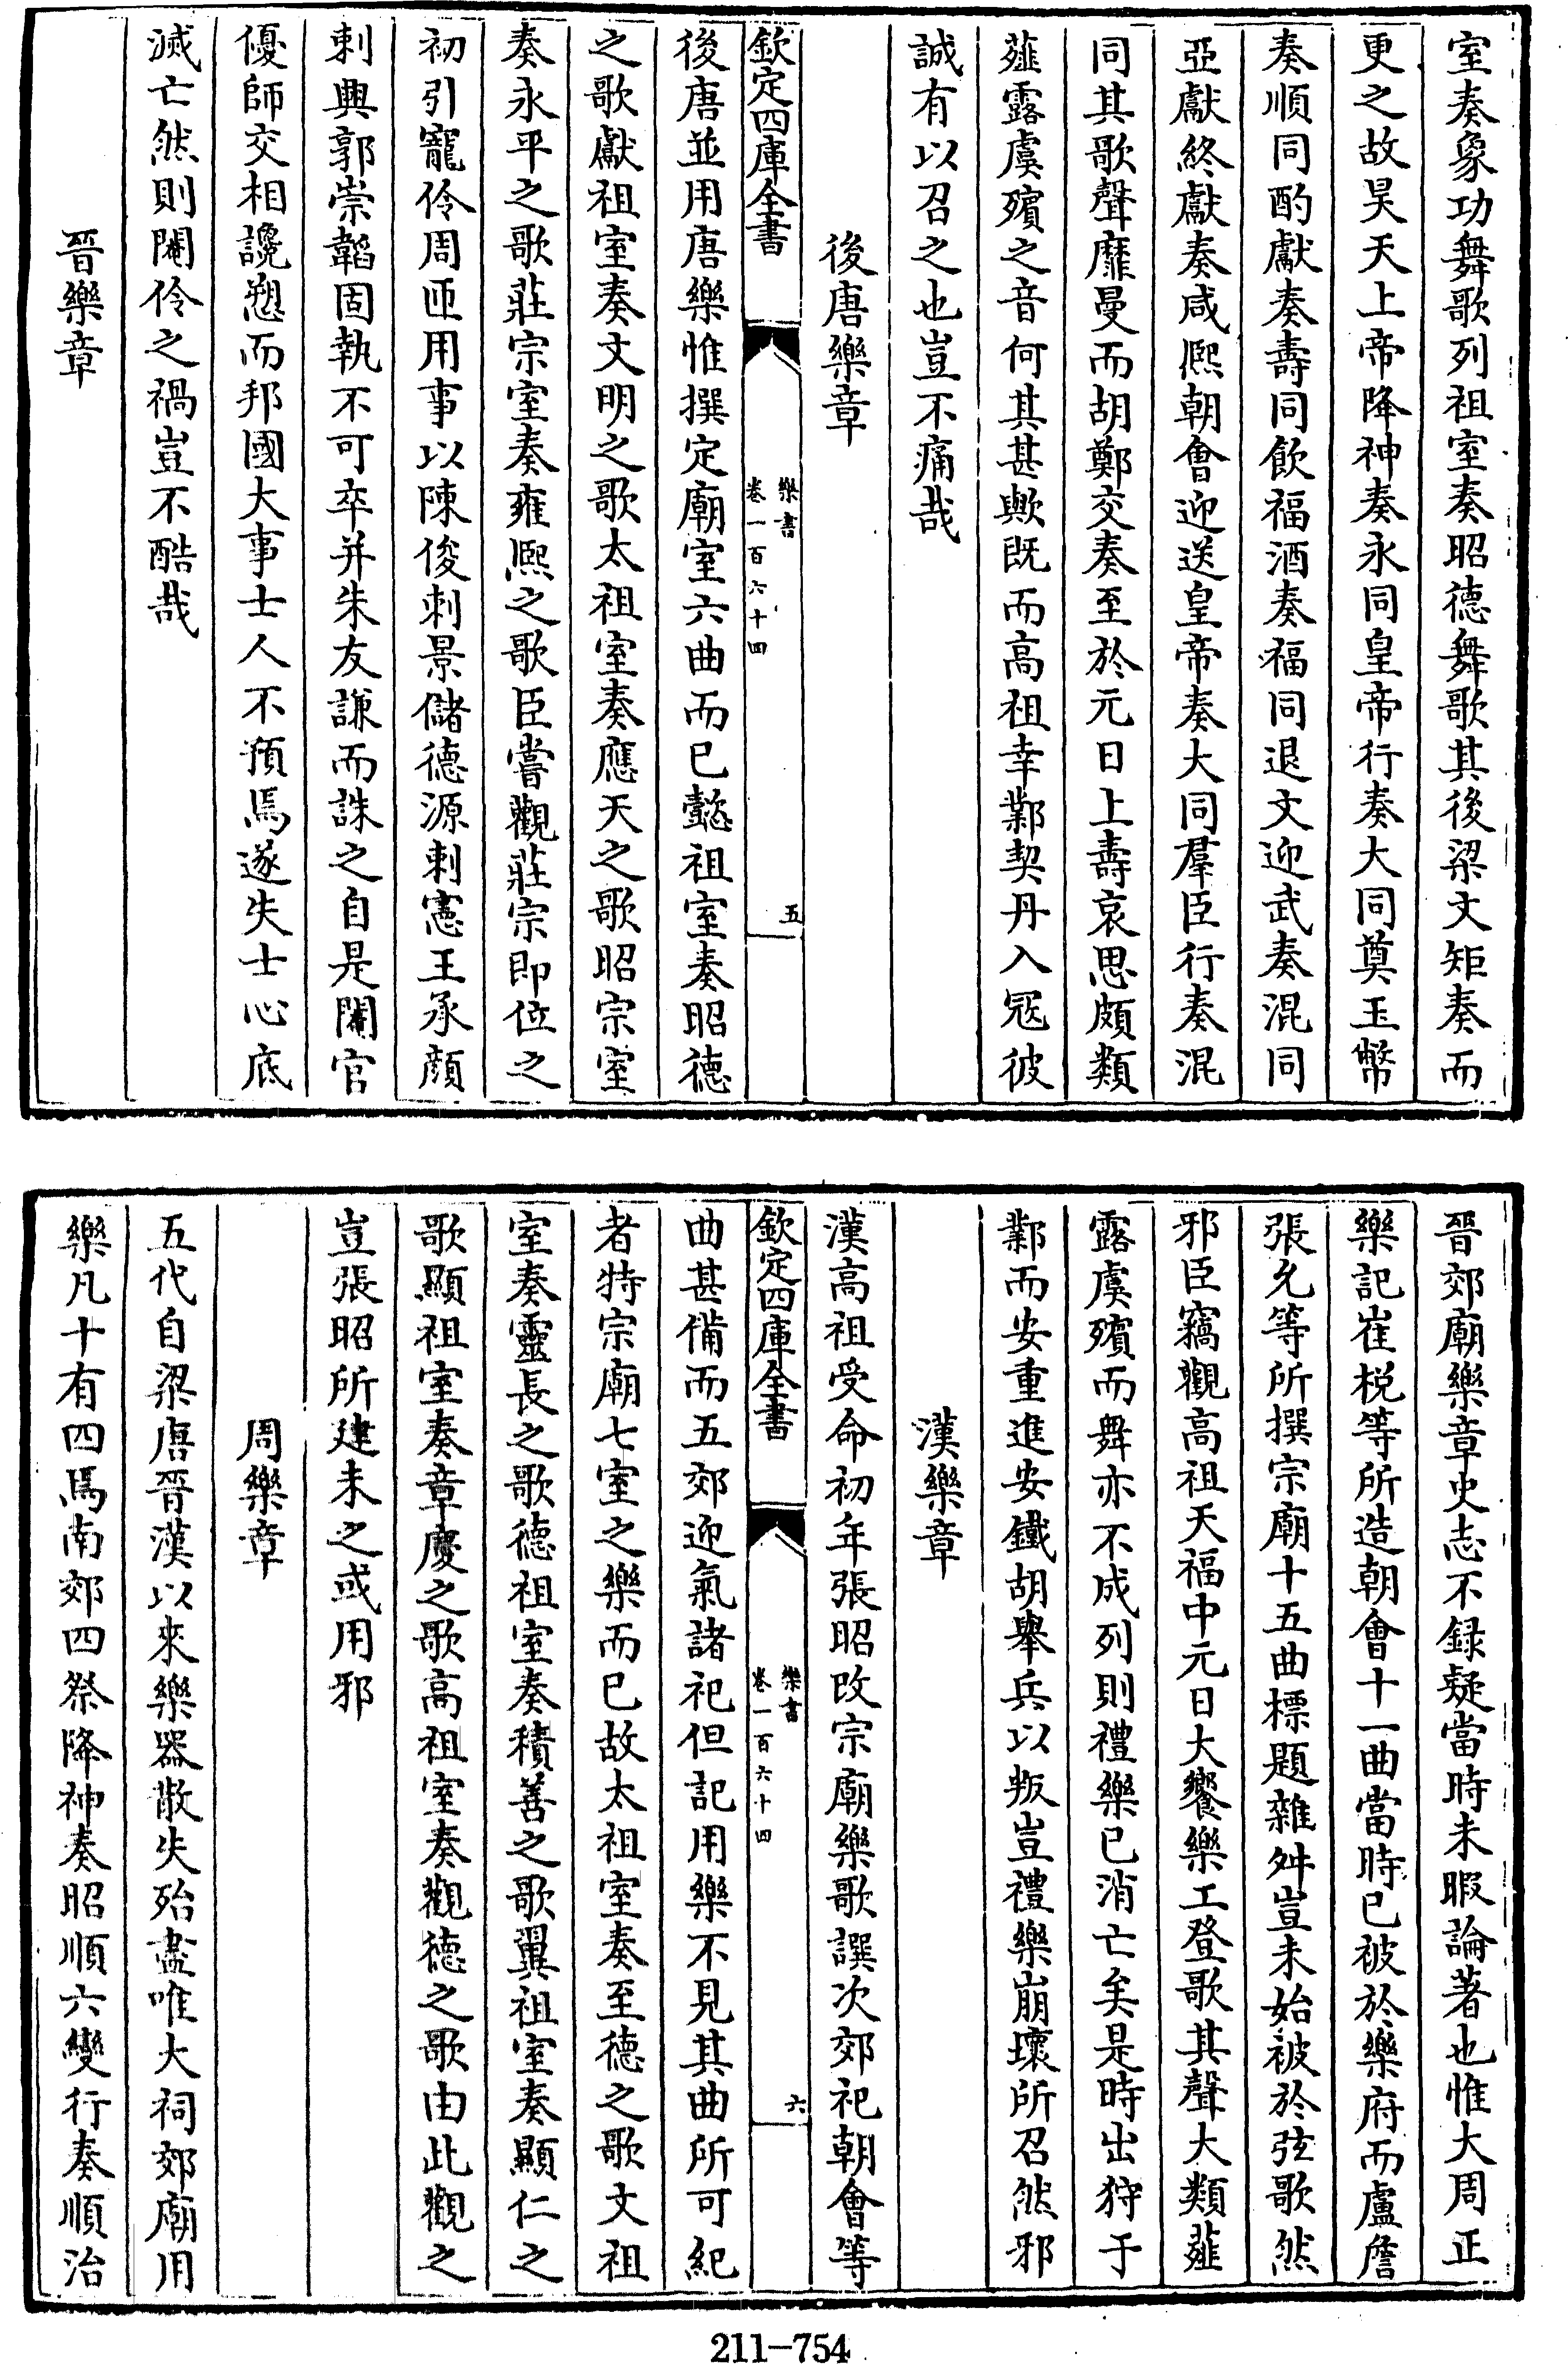 室奏象功舞歌列祖室奏昭德舞歌其後梁文矩奏而
更之故昊天上帝降神奏永同皇帝行奏大同奠玉幣
奏順同酌獻奏壽同飲福酒奏福同退文迎武奏混同
亞獻終獻奏咸熙朝會迎送皇帝奏大同羣臣行奏混
同其歌聲靡曼而胡鄭交奏至於元日上壽哀思頗類
薤露虞殯之音何其甚歟既而高祖幸鄴契丹入冦彼
誠有以召之也豈不痛哉
後唐樂章
欽定四庫全書
樂書
卷一百六十四
五
後唐並用唐樂惟撰定廟室六曲而已懿祖室奏昭德
之歌獻祖室奏文明之歌太祖室奏應天之歌昭宗室
奏永平之歌莊宗室奏雍熙之歌臣嘗觀莊宗即位之
初引寵伶周匝用事以陳俊刺景儲德源刺憲王承顔
刺興郭崇韜固執不可卒并朱友謙而誅之自是閹官
優師交相讒愬而邦國大事士人不預焉遂失士心底
滅亡然則閹伶之禍豈不酷哉
晉樂章
晉郊廟樂章史志不録疑當時未暇論著也惟大周正
樂記崔梲等所造朝會十一曲當時已被於樂府而盧詹
張允等所撰宗廟十五曲標題雜舛豈未始被於弦歌然
邪臣竊觀高祖天福中元日大饗樂工登歌其聲大類薤
露虞殯而舞亦不成列則禮樂已消亡矣是時出狩于
鄴而安重進安鐵胡舉兵以叛豈禮樂崩壞所召然邪
漢樂章
漢高祖受命初年張昭改宗廟樂歌譔次郊祀朝會等
欽定四庫全書
樂書
卷一百六十四
六
曲甚備而五郊迎氣諸祀但記用樂不見其曲所可紀
者特宗廟七室之樂而已故太祖室奏至德之歌文祖
室奏靈長之歌德祖室奏積善之歌翼祖室奏顯仁之
歌顯祖室奏章慶之歌高祖室奏觀德之歌由此觀之
豈張昭所建未之或用邪
周樂章
五代自梁唐晉漢以來樂器散失殆盡唯大祠郊廟用
樂凡十有四焉南郊四祭降神奏昭順六變行奏順治
211-754